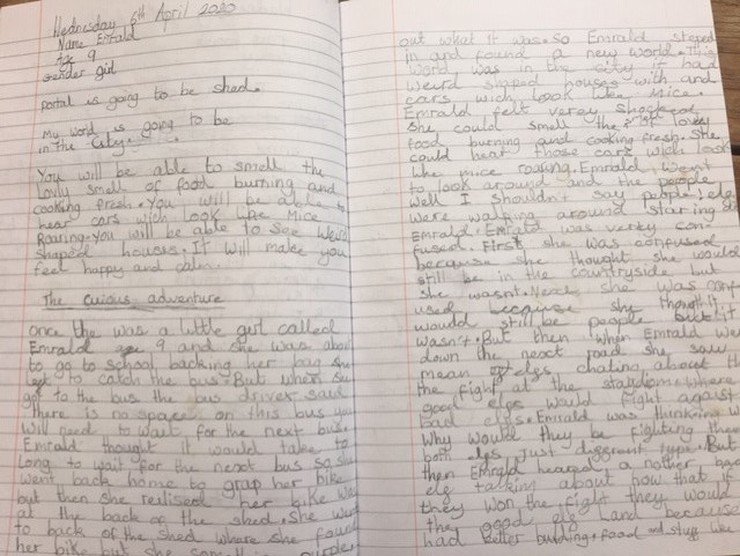 Wednesday 6th April 2020
Name Emrald
Age 9
Gender girl
portal is going to be shed.
My world is going to be
in the city.
You will be able to smell the
Lovly smell of food burning and
cooking fresh. You will be able to
hear cars wich look like Mice
Roaring. You will be able to see Weird
shaped houses. It Will make you
feel happy and calm.
The cuious adventure
once the was a little girl called
Emrald age 9 and she was about
to go to school backing her bag she
left to catch the bus. But when she
got to the bus the bus driver said
there is no space on this bus you
Will need to wait for the next bus.
Emrald thought it would take to
Long to wait for the next bus so she
went back home to grap her bike
but then she realised her bike was
at the back of the shed. She went
to back of the shed where she found
her bike but she
out what it was. So Emrald steped
in and found a new world. This
word was in the city it had
weird shaped houses with and
cars wich look like mice.
Emrald felt verey shocked
she could smell the lovey
food burning and cooking fresh. She
could hear those cars wich look
like mice roaring. Emrald went
to look around and the people
well I shouldn't say people; elgs
were walking around staring at
Emrald. Emrald was verey con-
fused. First she was confused
because she thought she would
still be in the countryside but
she wasnt. Next she was conf-
used because she thought it
would still be people but it
wasn't. But then when Emrald we
down the next road she saw
mean elgs chating about th
the fight at the staydome where
good elgs would fight agaist
bad elgs. Emrald was thinking w
Why would they be fighting there
both elgs just diggrent type. But
then Emrald heared a nother bad
elg talking about how that if
they won the fight they would
the good elg land because
had better building, food and stuff like